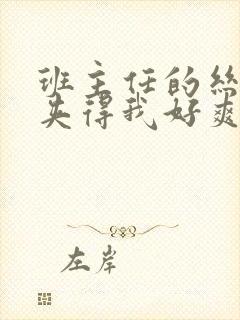 班主任的丝
失得我好爽
左岸